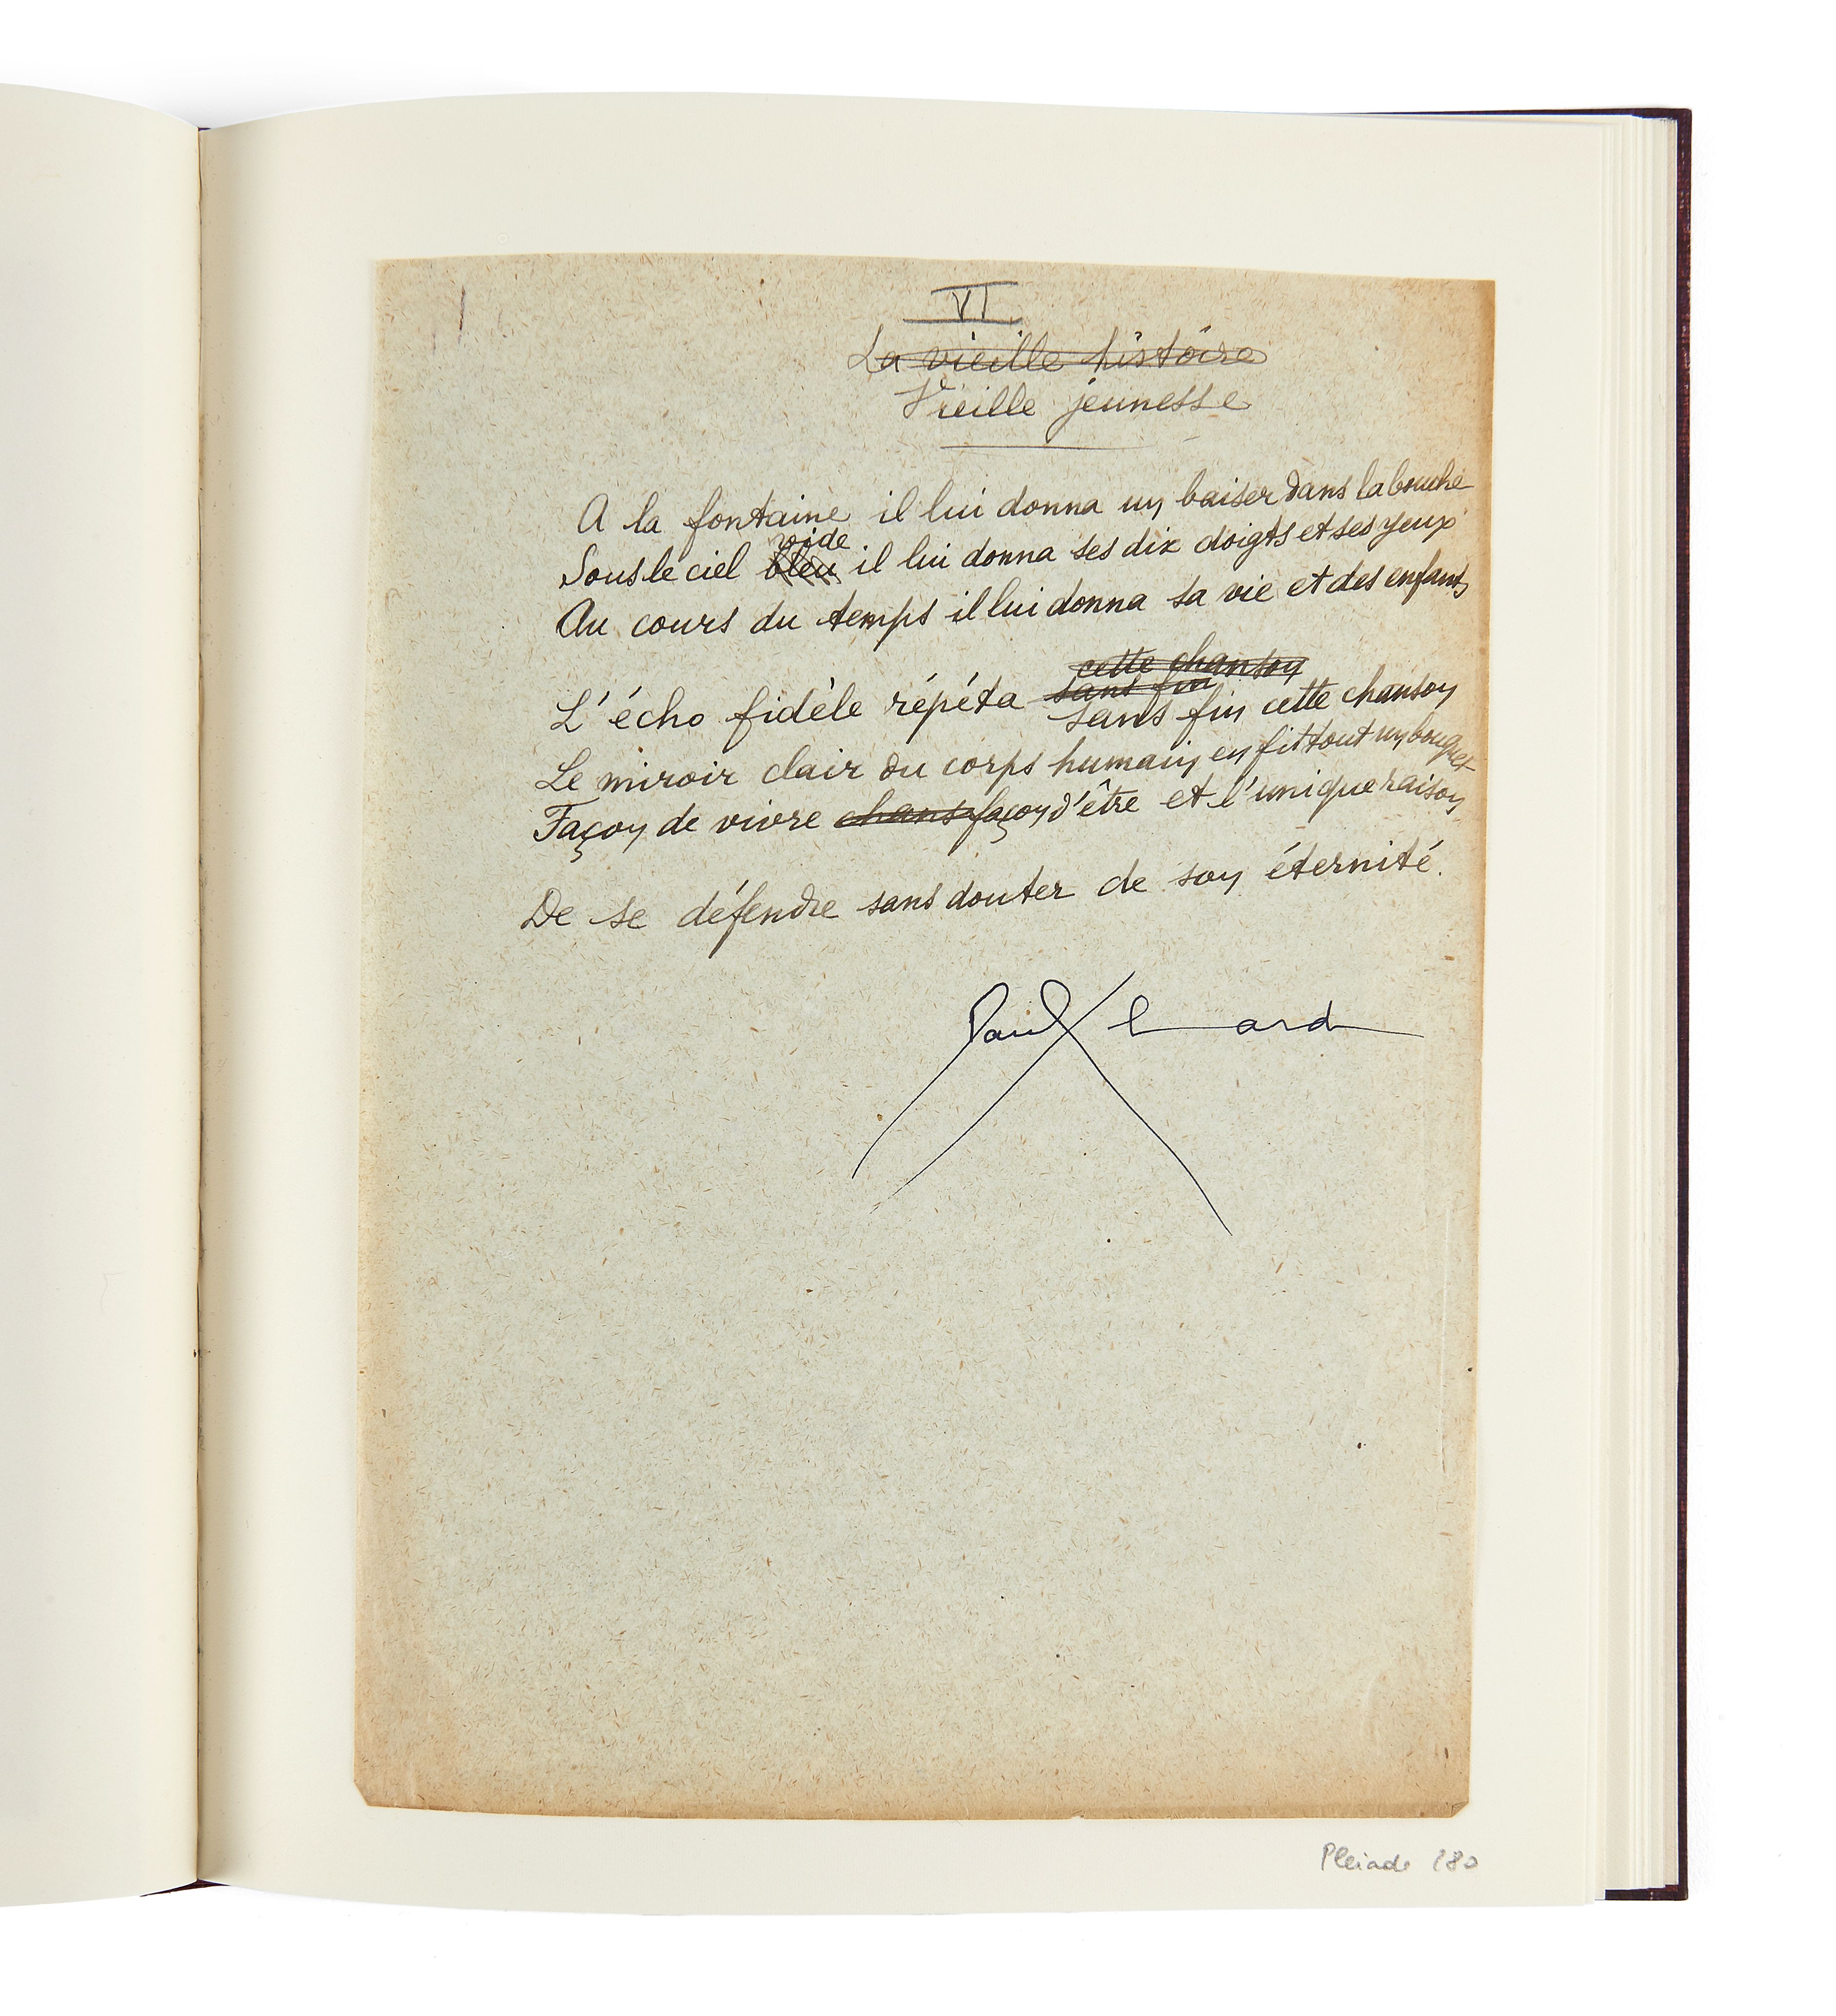 VI
La vieille histoire
Vieille jeunesse
A la fontaine il lui donna un baiser dans la bouche
vide
Sous le ciel bleu il lui donna ses dix doigts et ses yeux
Au cours du temps il lui donna sa vie et des enfants
cette chanson
L'écho fidèle répéta sans fin
sans fin cette chanson
Le miroir clair du corps humain en fit tout un bouquet
Façon de vivre chans façon d'être et l'unique raison
De se défendre sans douter de son éternité.
Paul Eluard
Pleiade